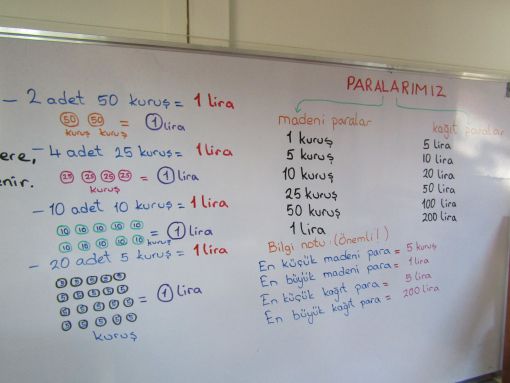 ere,
enir.
– 2 adet 50 kuruş = 1 lira
50 50 = 1 lira
kuruş kuruş
– 4 adet 25 kuruş = 1 lira
25 25 25 25 = 1 lira
kuruş
– 10 adet 10 kuruş = 1 lira
10 10 10 10 10 = 1 lira
10 10 10 10 10 kuruş
– 20 adet 5 kuruş = 1 lira
5 5 5 5 5
5 5 5 5 5 = 1 lira
5 5 5 5 5
5 5 5 5 5
kuruş
PARALARIMIZ
madeni paralar
1 kuruş
5 kuruş
10 kuruş
25 kuruş
50 kuruş
1 lira
kağıt paralar
5 lira
10 lira
20 lira
50 lira
100 lira
200 lira
Bilgi notu: (Önemli!)
En küçük madeni para = 5 kuruş
En büyük madeni para = 1 lira
En küçük kağıt para = 5 lira
En büyük kağıt para = 200 lira